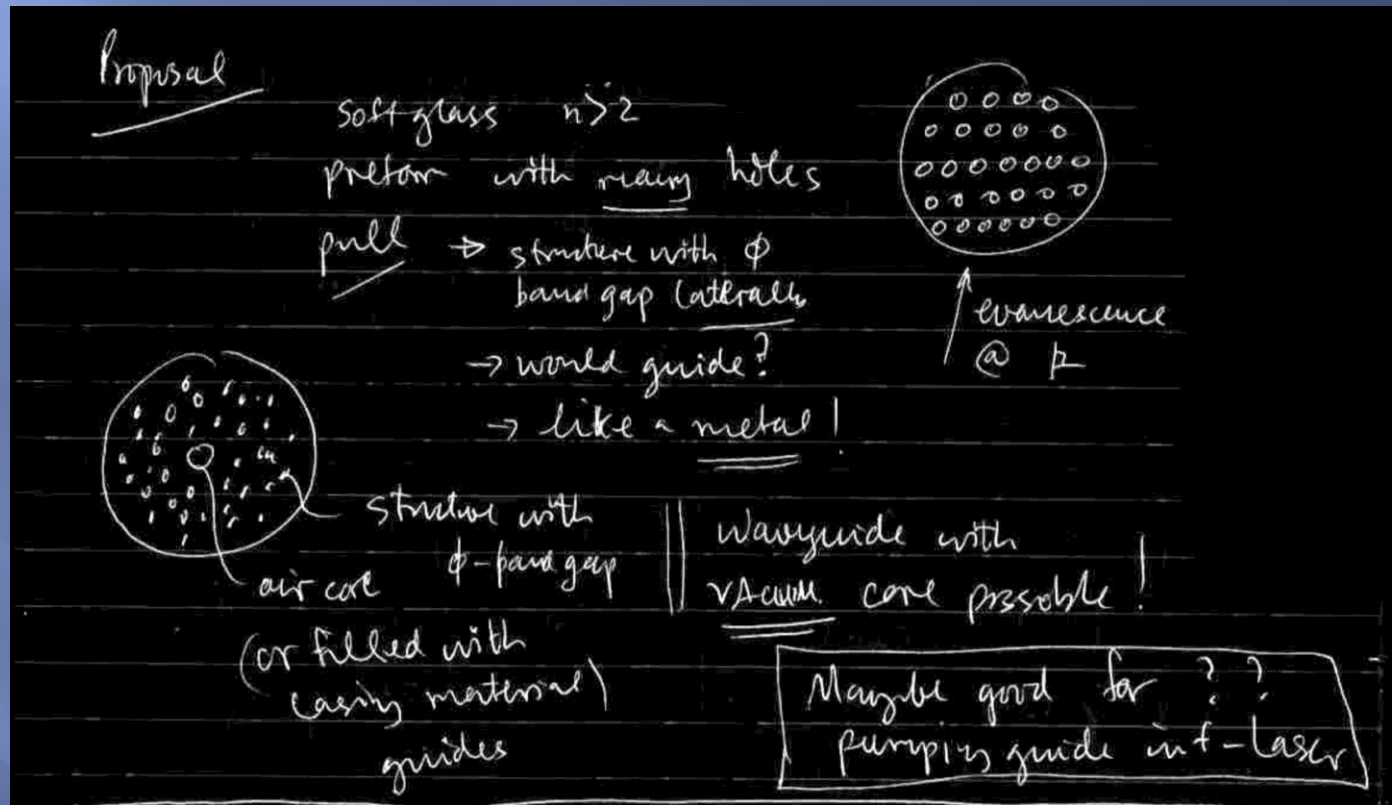 Proposal
soft glass n>2
preform with many holes
pull → structure with ϕ
band gap laterally
→ would guide?
→ like a metal!
evanescence
@
structure with
ϕ-band gap
air core
(or filled with
lasing material)
guides
waveguide with
vacuum core possible!
Maybe good for ? ?
pumping guide in f-laser